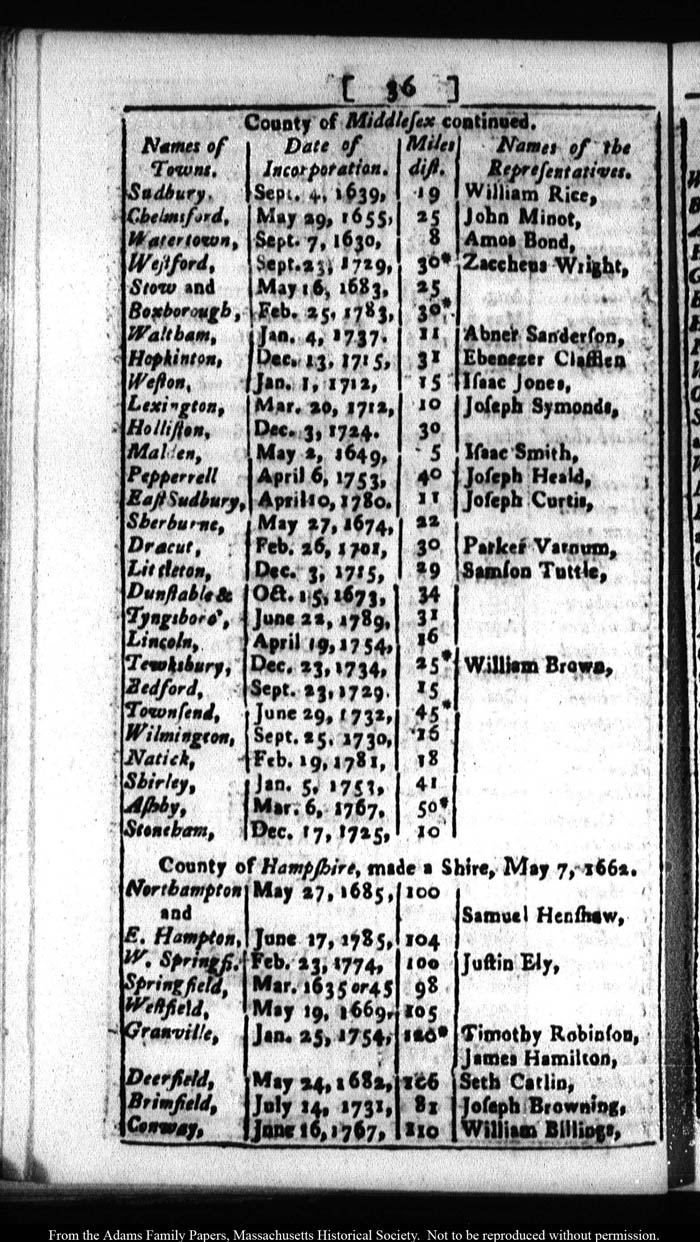 [ 36 ]
County of Middleſex continued.
Names of Towns. Date of Incorporation. Miles diſt. Names of the Repreſentatives.
Sudbury. Sept. 4, 1639, 19 William Rice,
Chelmsford, May 29, 1655, 25 John Minot,
Watertown, Sept. 7, 1630, 8 Amos Bond,
Weſtford, Sept. 23, 1729, 30* Zaccheus Wright,
Stow and May 16, 1683, 25
Boxborough, Feb. 25, 1783, 30*
Waltham, Jan. 4, 1737. 11 Abner Sanderſon,
Hopkinton, Dec. 13, 1715, 31 Ebenezer Clafflen
Weſton, Jan. 1, 1712, 15 Iſaac Jones,
Lexington, Mar. 20, 1712, 10 Joſeph Symonds,
Holliſton, Dec. 3, 1724. 30
Malden, May 2, 1649, 5 Iſaac Smith,
Pepperrell April 6, 1753, 40 Joſeph Heald,
Eaſt Sudbury, April 10, 1780. 11 Joſeph Curtis,
Sherburne, May 27, 1674, 22
Dracut, Feb. 26, 1701, 30 Parker Varnum,
Littleton, Dec. 3, 1715, 29 Samſon Tuttle,
Dunſtable & Oct. 15, 1673, 34
Tyngsboro', June 22, 1789, 31
Lincoln, April 19, 1754, 16
Tewksbury, Dec. 23, 1734, 25* William Brown,
Bedford, Sept. 23, 1729. 15
Townſend, June 29, 1732, 45*
Wilmington, Sept. 25. 1730, 16
Natick, Feb. 19, 1781, 18
Shirley, Jan. 5, 1753, 41
Aſhby, Mar. 6, 1767, 50*
Stoneham, Dec. 17, 1725, 10
County of Hampſhire, made a Shire, May 7, 1662.
Northampton May 27, 1685, 100
and Samuel Henſhaw,
E. Hampton, June 17, 1785, 104
W. Springfi. Feb. 23, 1774, 100 Juſtin Ely,
Springfield, Mar. 1635 or 45 98
Weſtfield, May 19, 1669, 105
Granville, Jan. 25, 1754, 120* Timothy Robinſon,
James Hamilton,
Deerfield, May 24, 1682, 106 Seth Catlin,
Brimfield, July 14, 1731, 81 Joſeph Browning,
Conway, June 16, 1767, 110 William Billings,
From the Adams Family Papers, Massachusetts Historical Society. Not to be reproduced without permission.